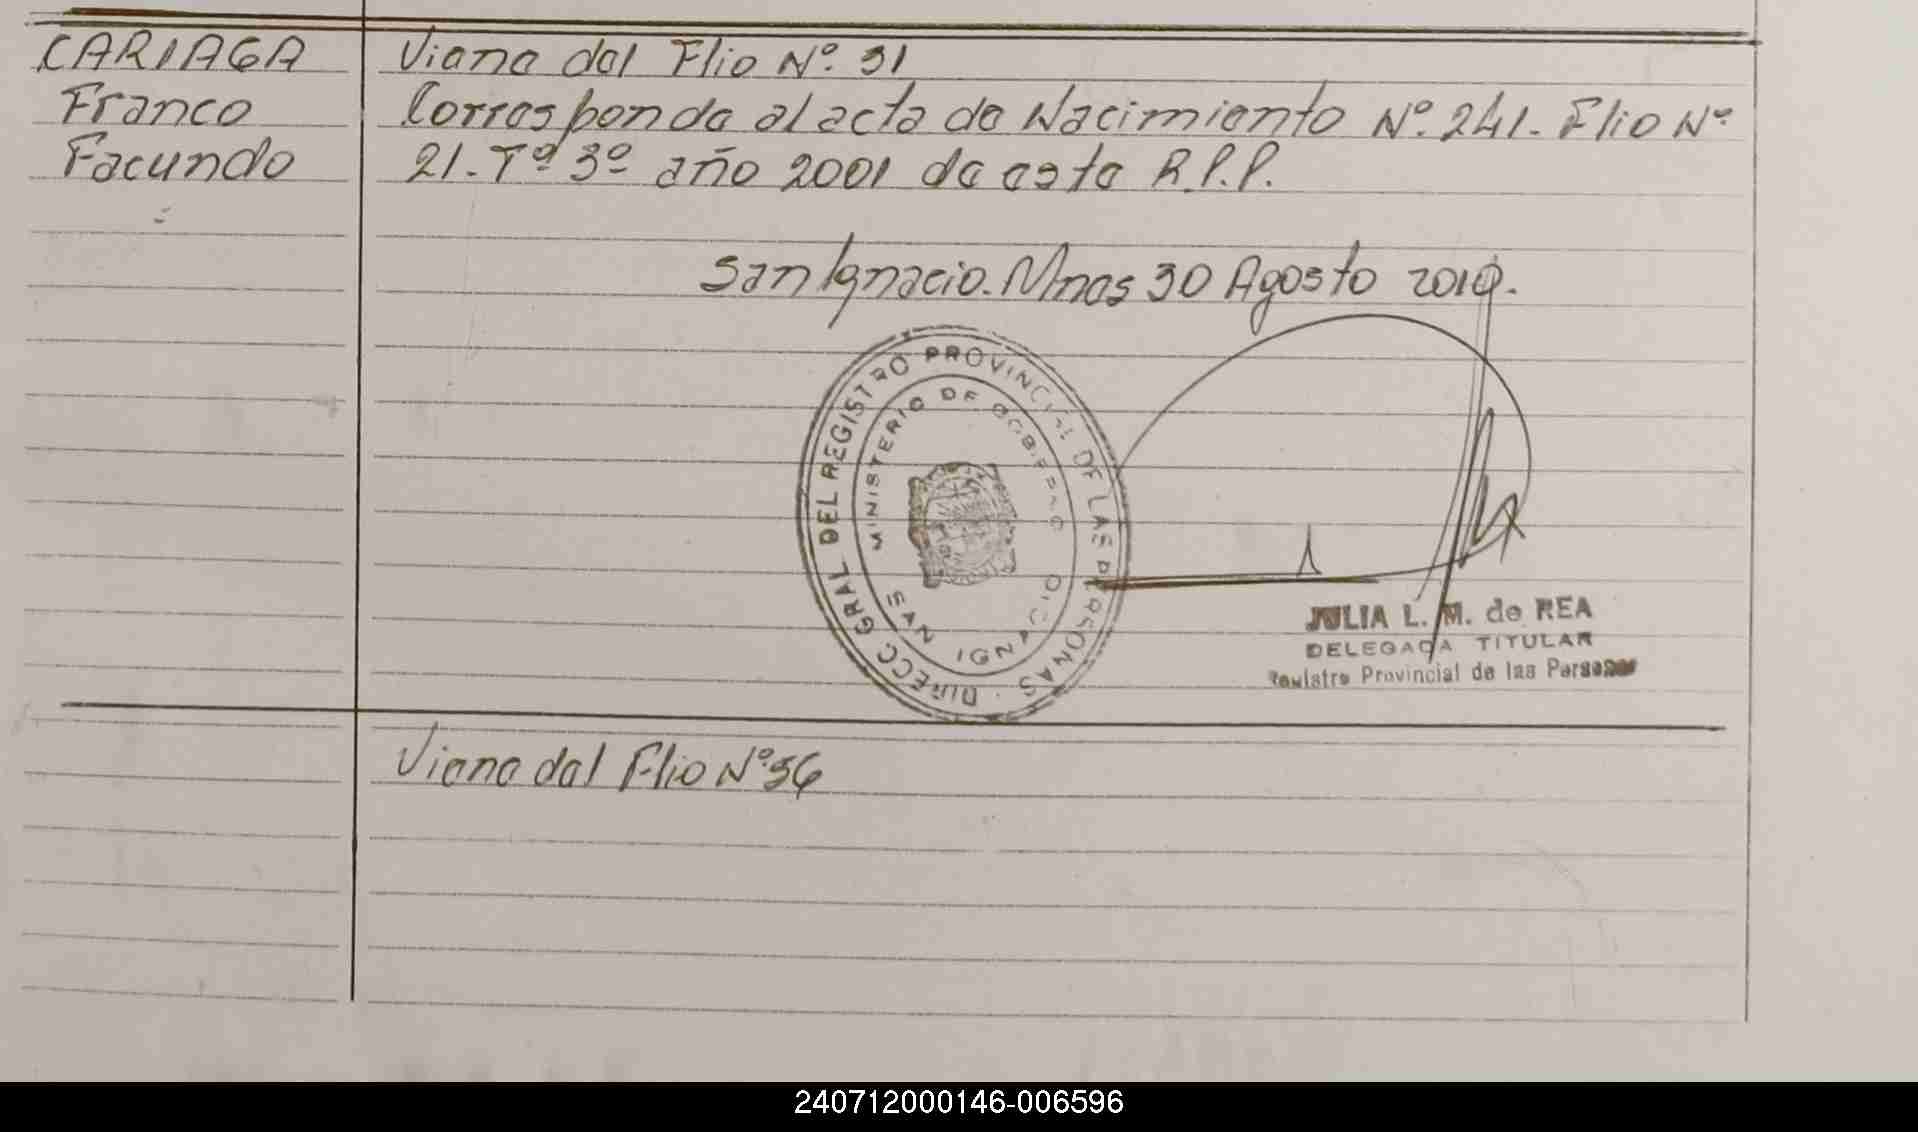 CARIAGA
Franco
Facundo
Viene del Flio Nº. 31
Corresponde al acta de Nacimiento Nº. 241. Flio Nº
21. Tº 3º año 2001 de este R.P.P.
San Ignacio. Mnes 30 Agosto 2010.
DIRECC GRAL DEL REGISTRO PROVINCIAL DE LAS PERSONAS
MINISTERIO DE GOBIERNO
SAN IGNACIO
JULIA L. M. de REA
DELEGADA TITULAR
Registro Provincial de las Personas
Viene del Flio Nº 36
240712000146-006596